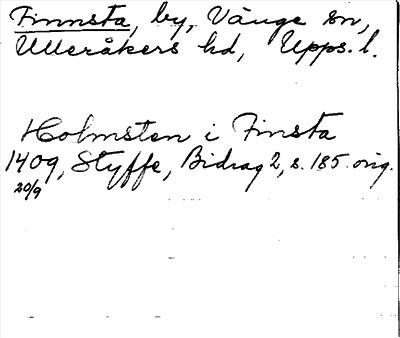 Finnsta, by, Vänge sn,
Ulleråkers hd, Upps. l.
Holmsten i Finsta
1409, Styffe, Bidrag 2, s. 185. orig.
20/9